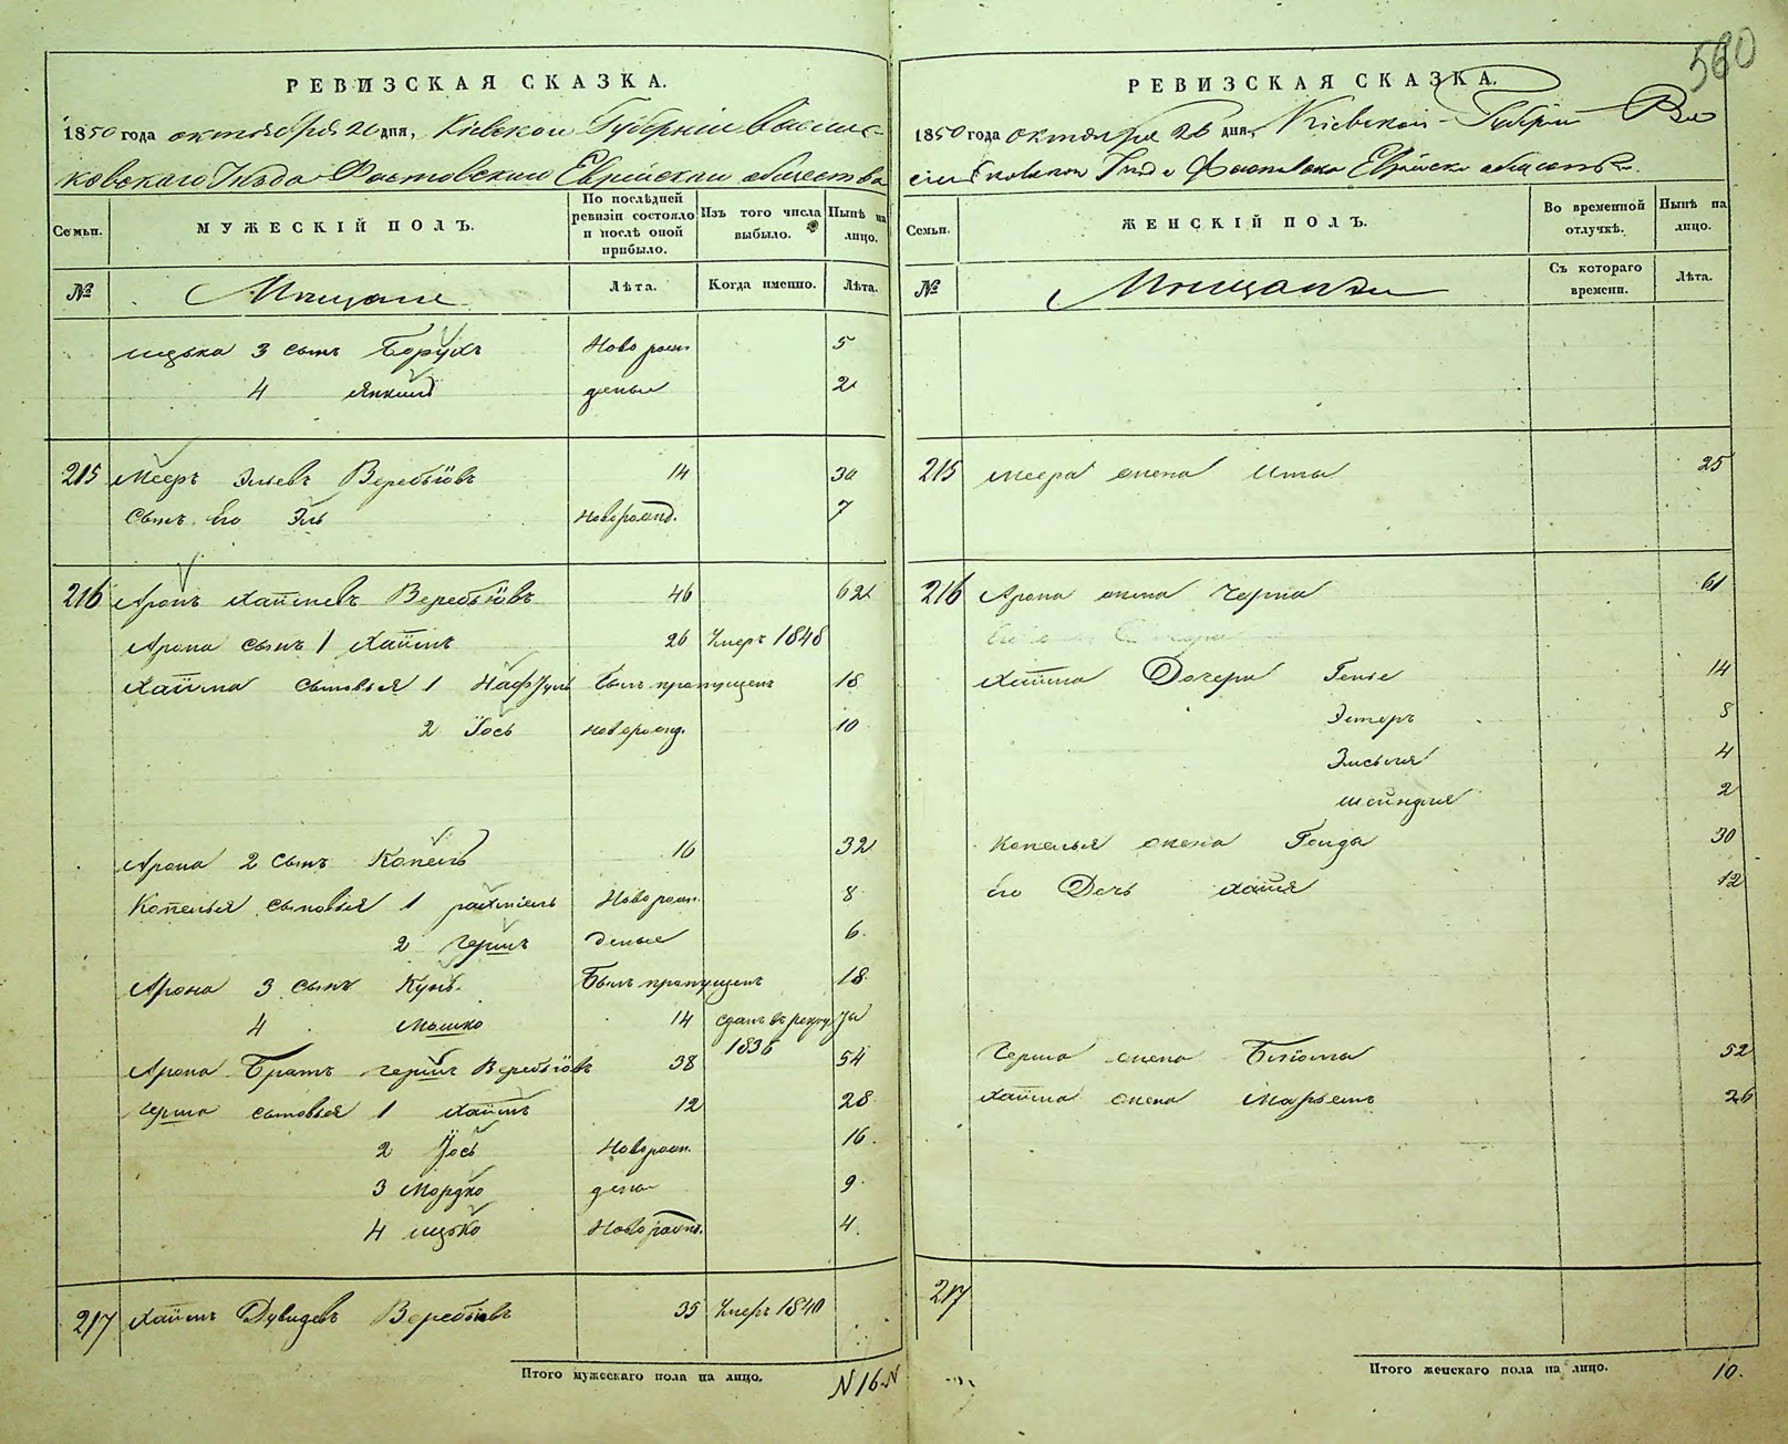 580
РЕВИЗСКАЯ СКАЗКА.
1850 года октября 20 дня, Кіевской Губерніи Василь-
ковскаго Уѣзда Фастовскаго Еврейскаго общества
Семьи.
МУЖЕСКІЙ ПОЛЪ.
По послѣдней ревизіи состояло и послѣ оной прибыло.
Изъ того числа выбыло.
Нынѣ на лицо.
№
Мѣщане
Лѣта.
Когда именно.
Лѣта.
ицька 3 сынъ Борухъ Ново рож 5
4 Янкель деные 2
215 Мееръ Эльевъ Веребіовъ 14 30
Сынъ его Эль Новорожд. 7
216 Аронъ Хаимовъ Веребіовъ 46 62
Арона сынъ 1 Хаимъ 26 Умеръ 1848
Хаима сыновья 1 Нафтула Былъ пропущенъ 18
2 Іось Новорожд. 10
Арона 2 сынъ Копель 16 32
Копеля сыновья 1 рахміель Ново рож. 8
2 Гершъ деные 6.
Арона 3 сынъ Кунъ. Былъ пропущенъ 18
4 Мошко 14 сданъ въ рекруты 1836
Арона Братъ Гершъ Веребіовъ 38 54
Герша сыновья 1 Хаимъ 12 28
2 Іось Ново рож. 16.
3 Мордко дены 9.
4 ицько Ново рожд. 4.
217 Хаимъ Дувидовъ Веребіовъ 35 Умеръ 1840
Итого мужескаго пола на лицо. N 16. N
РЕВИЗСКАЯ СКАЗКА.
1850 года октября 20 дня, Кіевской Губерніи Ва
сильковскаго Уѣзда Фастовскаго Еврейскаго общества.
Семьи.
ЖЕНСКІЙ ПОЛЪ.
Во временной отлучкѣ.
Нынѣ на лицо.
№
Мѣщанки
Съ котораго времени.
Лѣта.
215 Меера жена Ита 25
216 Арона жена Черна 61
Хаима Дочери Генie 14
Эстеръ 8
Зисьля 4
Шейндля 2
Копеля жена Гольда 30
его Дочь Хайя 12
Герша жена Блюма 52
Хаима жена Марьемъ 26
217
Итого женскаго пола на лицо. 10.